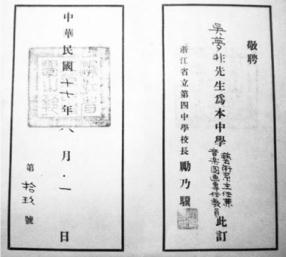 敬聘
吳夢非先生爲本中學藝術系主任兼音樂圖畫專任教員此訂
浙江省立第四中學校長 勵乃驥
中華民國十七年八月·一日
第拾玖號